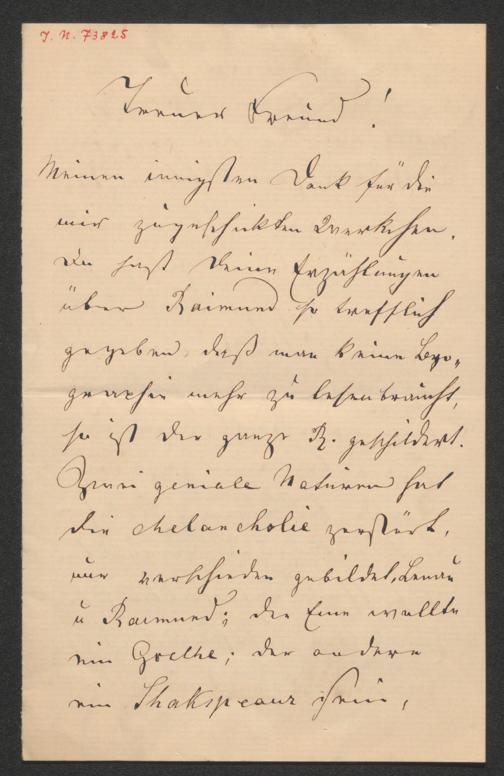 J. N. 73825
Treuer Freund!
Meinen innigsten Dank für die
mir zugeschickten Werkchen.
Du hast deine Erzählungen
über Raimund so trefflich
gegeben, daß man keine Byo-
graphie mehr zu lesen braucht,
so ist der ganze R. geschildert.
Zwei geniale Naturen hat
die Melancholie zerstört,
nur verschieden gebildet, Lenau
u Raimund; der Eine wollte
ein Goethe; der andere
ein Shakspeare sein,